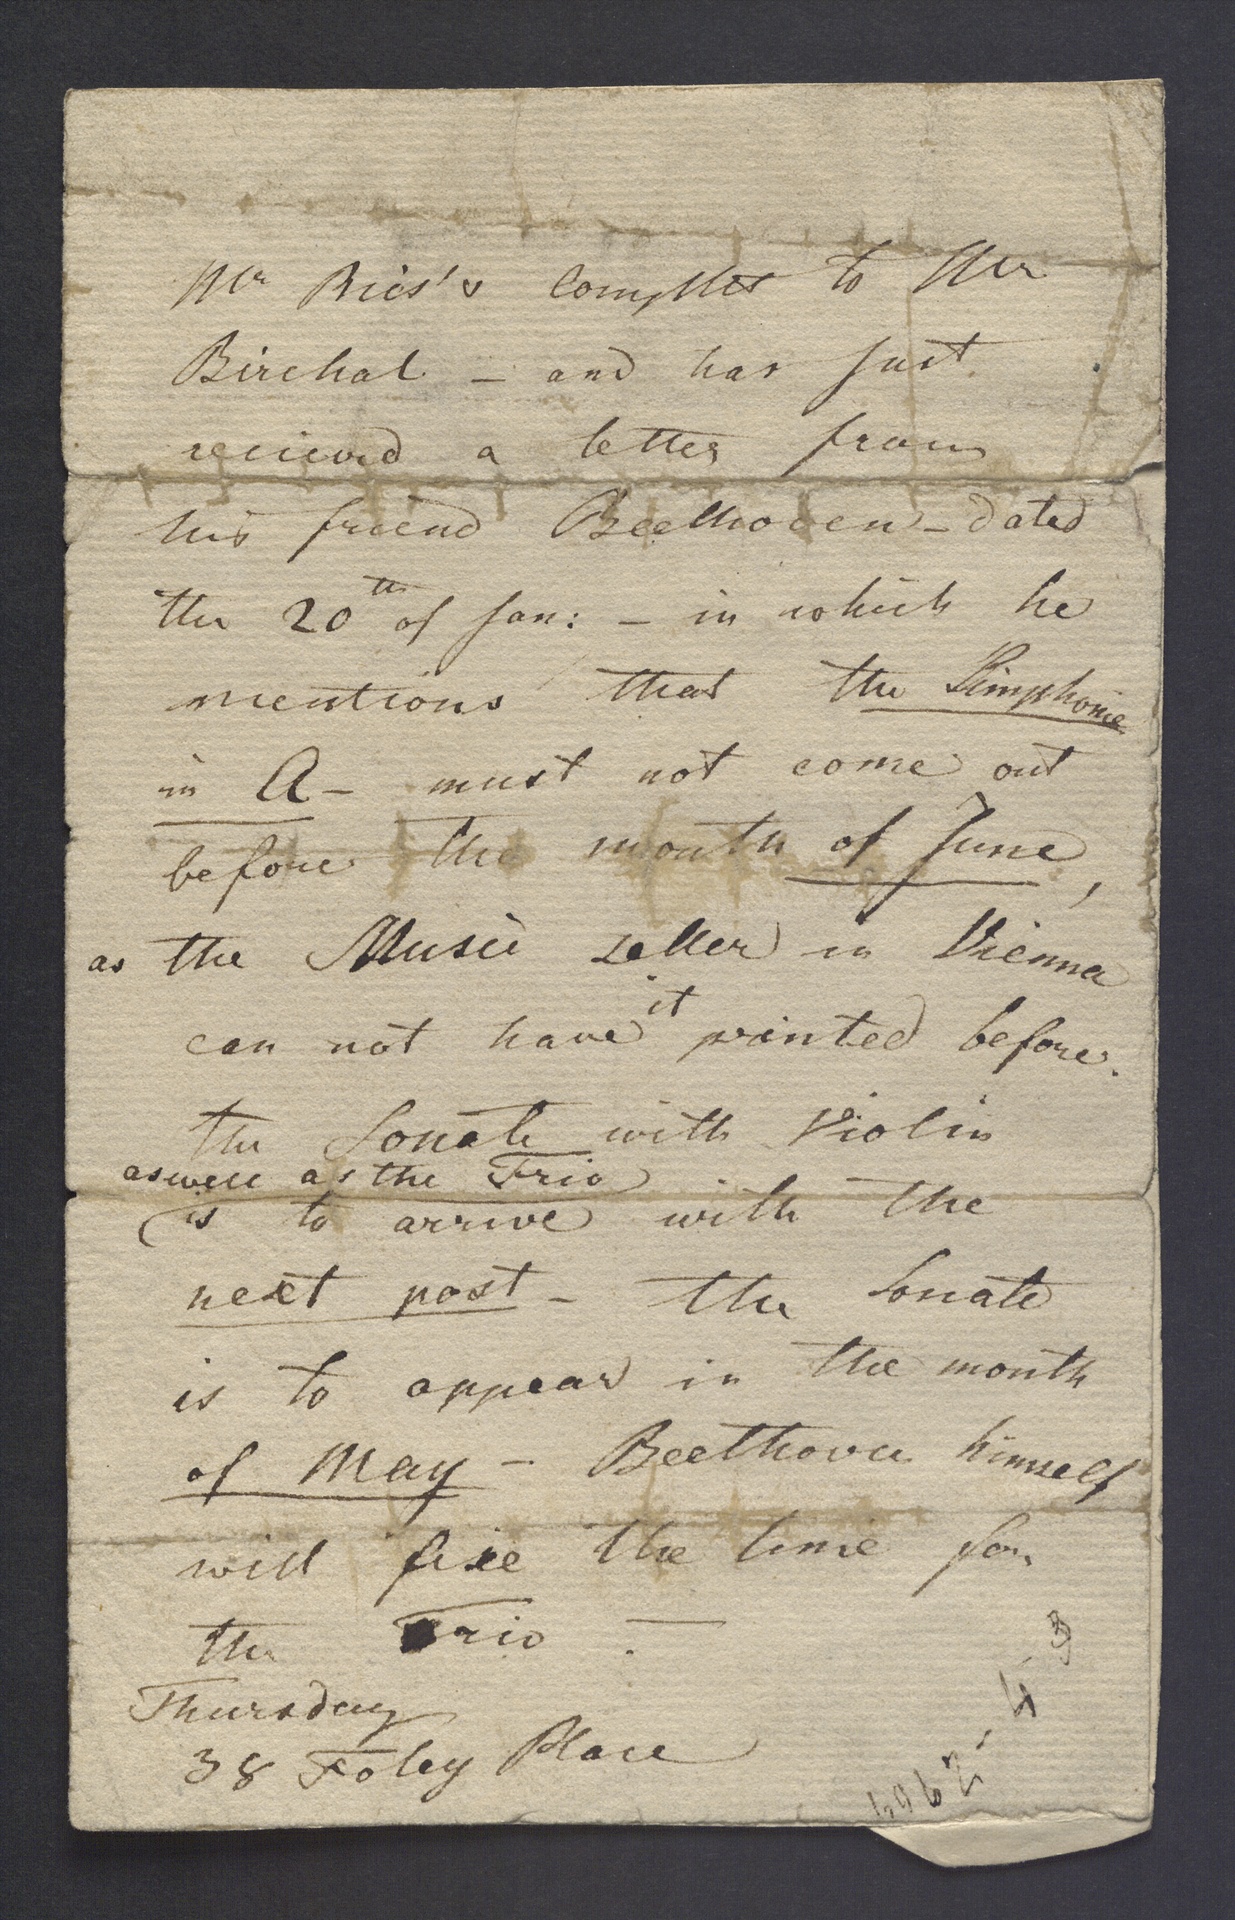 Mr Ries's Complts to Mr
Birchal – and has just
recieved a letter from
his friend Beethoven – dated
the 20th of Jan: – in which he
mentions that the Simphonie
in A – must not come out
before the month of June,
as the Music seller in Vienna
can not have it printed before.
the Sonate with Violin
as well as the Trio
is to arrive with the
next post – the Sonate
is to appear in the month
of May – Beethoven himself
will fixe the time for
the Trio. —
Thursday
38 Foley Place